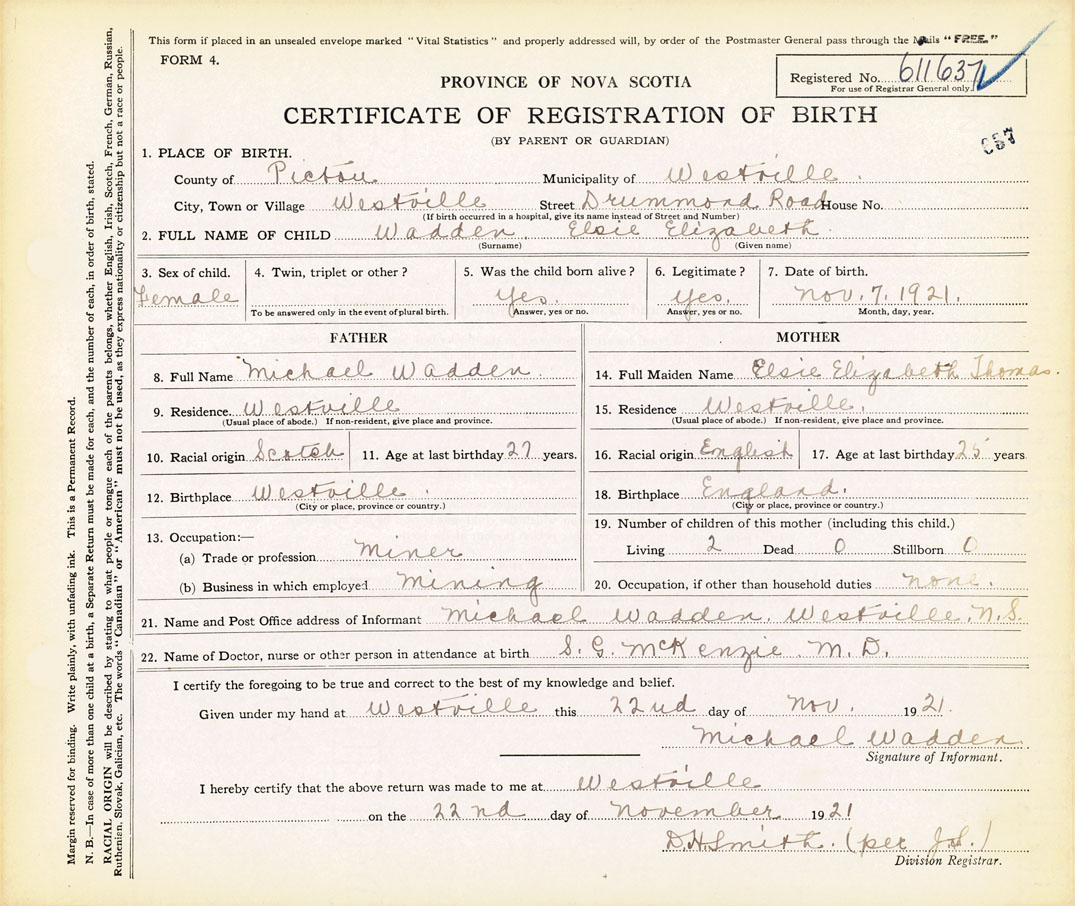 This form if placed in an unsealed envelope marked "Vital Statistics" and properly addressed will, by order of the Postmaster General pass through the Mails "FREE."
FORM 4.
PROVINCE OF NOVA SCOTIA
Registered No. 611637
For use of Registrar General only.
CERTIFICATE OF REGISTRATION OF BIRTH
(BY PARENT OR GUARDIAN)
1. PLACE OF BIRTH.
County of Pictou Municipality of Westville.
City, Town or Village Westville Street Drummond Road House No.
(If birth occurred in a hospital, give its name instead of Street and Number)
2. FULL NAME OF CHILD Wadden, Elsie Elizabeth
(Surname) (Given name)
3. Sex of child. 4. Twin, triplet or other? 5. Was the child born alive? 6. Legitimate? 7. Date of birth.
Female Yes. Yes. Nov. 7. 1921.
To be answered only in the event of plural birth. Answer, yes or no. Answer, yes or no. Month, day, year.
FATHER MOTHER
8. Full Name Michael Wadden. 14. Full Maiden Name Elsie Elizabeth Thomas.
9. Residence. Westville 15. Residence Westville.
(Usual place of abode.) If non-resident, give place and province. (Usual place of abode.) If non-resident, give place and province.
10. Racial origin Scotch 11. Age at last birthday 27 years. 16. Racial origin English 17. Age at last birthday 25 years
12. Birthplace Westville. 18. Birthplace England.
(City or place, province or country.) (City or place, province or country.)
13. Occupation:— 19. Number of children of this mother (including this child.)
(a) Trade or profession Miner Living 2 Dead 0 Stillborn 0
(b) Business in which employed Mining 20. Occupation, if other than household duties none.
21. Name and Post Office address of Informant Michael Wadden, Westville, N.S.
22. Name of Doctor, nurse or other person in attendance at birth S. G. McKenzie. M. D.
I certify the foregoing to be true and correct to the best of my knowledge and belief.
Given under my hand at Westville this 22nd day of Nov. 1921.
Michael Wadden
Signature of Informant.
I hereby certify that the above return was made to me at Westville
on the 22nd day of November 1921
D.H Smith. (per J.S.)
Division Registrar.
Margin reserved for binding. Write plainly, with unfading ink. This is a Permanent Record.
N. B.—In case of more than one child at a birth, a Separate Return must be made for each, and the number of each, in order of birth, stated.
RACIAL ORIGIN will be described by stating to what people or tongue each of the parents belongs, whether English, Irish, Scotch, French, German, Russian,
Ruthenian, Slovak, Galician, etc. The words "Canadian" or "American" must not be used, as they express nationality or citizenship but not a race or people.